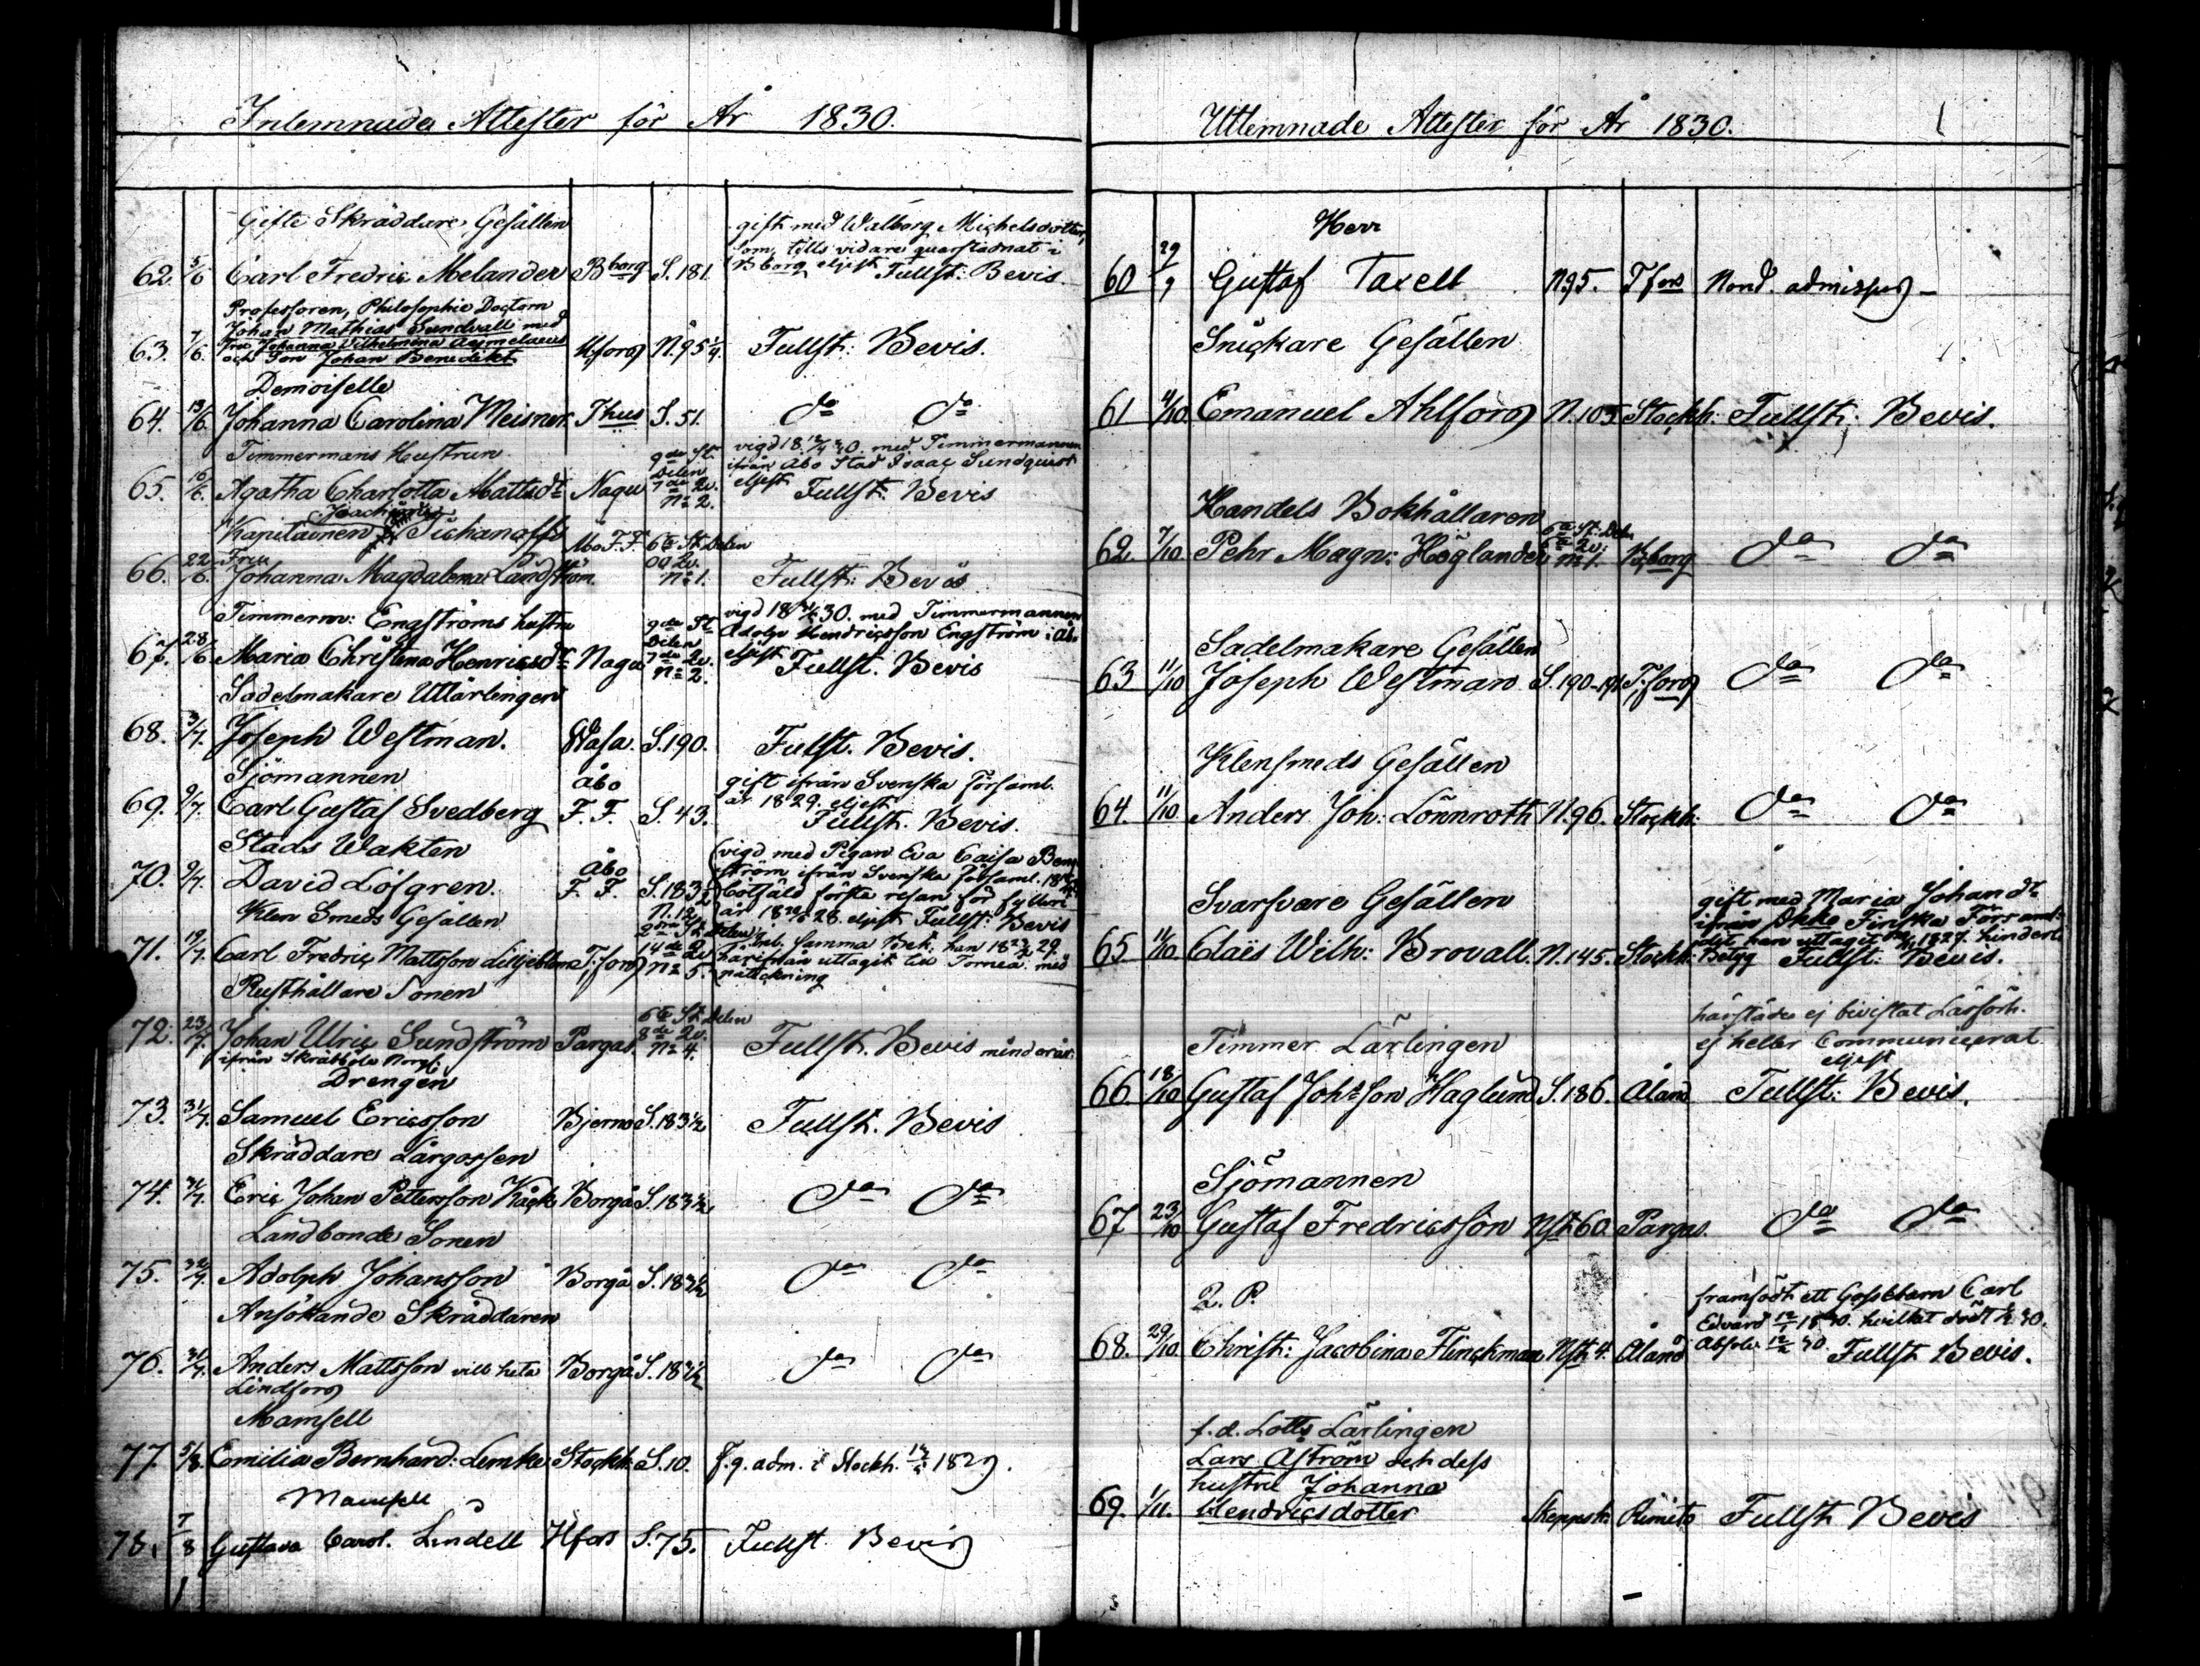 Inlemnade Attester för År 1830.
Gifte Skräddare Gesällen
62. 5/6 Carl Fredric Melander Bborg S. 181.
gift med Walborg Michelsdotter,
som tills vidare quarstadnat i
Bborg eljest Fullst: Bevis.
Professoren, Philosophie Doctorn
Johan Mathias Sundvall med
63. 7/6. Fru Johanna Vilhelmina Aejmelaeus Hfors N. 95 Fullst: Bevis.
och Son Johan Benedikt
Demoiselle
64. 13/6. Johanna Carolina Meisner Thus S. 51. do do
Timmermans Hustrun
65. 16/6. Agatha Charlotta Mattsdr Nagu 9de St Delen 7de Qv. No 2.
vigd med Timmermannen
ifrån Åbo Stad Isaac Sundqvist
eljest Fullst. Bevis
Joachim
Kapitainen Tichanoffs
66. 22/6. Fru Johanna Magdalena Landström Åbo F. F. 6te St. Delen Qv. No 1. Fullst: Bevis
Timmerm: Engströms hustru
67. 28/6 Maria Christina Henricsdr Nagu 9de St Delen 7de Qv. No 2.
vigd med Timmermannen
Adolph Hendricsson Engström i Åbo
eljest Fullst. Bevis
Sadelmakare Utlärlingen
68. 3/7. Joseph Westman. Wasa. S. 190. Fullst. Bevis.
Sjömannen
69. 9/7. Carl Gustaf Svedberg Åbo F. F. S. 43.
gift ifrån Svenska Församl.
år 1829. eljest
Fullst. Bevis.
Stads Wakten
70. 9/7. David Löfgren. Åbo F. F. S. 183
vigd med Pigan Eva Caisa
ström ifrån Svenska Församl.
botfäld första resan för fylleri
år eljest Fullst: Bevis
Klen Smeds Gesällen
71. 19/7. Carl Fredric Mattsson Liljeblom T:fors N. 12 14de Qv. No 5.
samma Bet. han
härifrån uttagit till Torneå med
Rusthållare Sonen
72. 23/7. Johan Ulric Sundström Pargas. 6te St. Delen 8de Qv. No 4. Fullst. Bevis minderår.
ifrån Skräbböle
Drengen
73. 31/7. Samuel Ericsson Bjerno S. 183 1/2 Fullst. Bevis
Skräddare Lärgossen
74. 31/7. Eric Johan Pettersson Käck Borgå S. 183 1/2. do do
Landbonde Sonen
75. 31/7. Adolph Johansson Borgå S. 183 1/2 do do
Ansökande Skräddaren
76. 31/7. Anders Mattsson vill heta Borgå S. 183 1/2 do do
Lindfors
Mamsell
77. 5/8. Emilia Bernhard: Lemke Stockh: S. 10. f. g. adm. i Stockh. 1829.
Mamsell
78. 7/8 Gustava Carol. Lindell Hfors S. 75. Fullst Bevis
Uttlemnade Attester för År 1830.
Herr
60 29/9 Gustaf Taxell N 95. Tfors Nond. admissus
Snickare Gesällen
61 4/10. Emanuel Ahlfors N. 103 Stockh: Fullst: Bevis.
Handels Bokhållaren
62 7/10 Pehr Magn: Höglander 6te St: Delen 6te Qv. No 1. Bborg do do
Sadelmakare Gesällen
63 11/10 Joseph Westman S. 190-191 T:fors do do
Klensmeds Gesällen
64. 11/10 Anders Joh: Lönnroth N. 96. Stockh: do do
Svarfvare Gesällen
65 11/10 Claës Wilh: Brovall. N. 145. Stockh:
gift med Maria Johansdr
ifrån Åbo Finska Församl:
dit han uttagit 1827. hinderl.
Betyg Fullst: Bevis.
Timmer Lärlingen
härstädes ej bivistat Läsförh.
ej heller Communicerat
eljest
66. 18/10 Gustaf Johsson Haglund S. 186. Åland Fullst: Bevis.
Sjömannen
67 23/10 Gustaf Fredricsson Nst 60. Pargas. do do
Q. P.
68. 29/10. Christ: Jacobina Flinckman Nst 4. Åland
framfödt ett Gossebarn Carl
Edvard hvilket dödt
Absolv. Fullst Bevis.
f. d. Lotts Lärlingen
Lars Åström och dess
hustru Johanna
69. 1/11. Hendricsdotter Skeppsk: Rimito Fullst Bevis